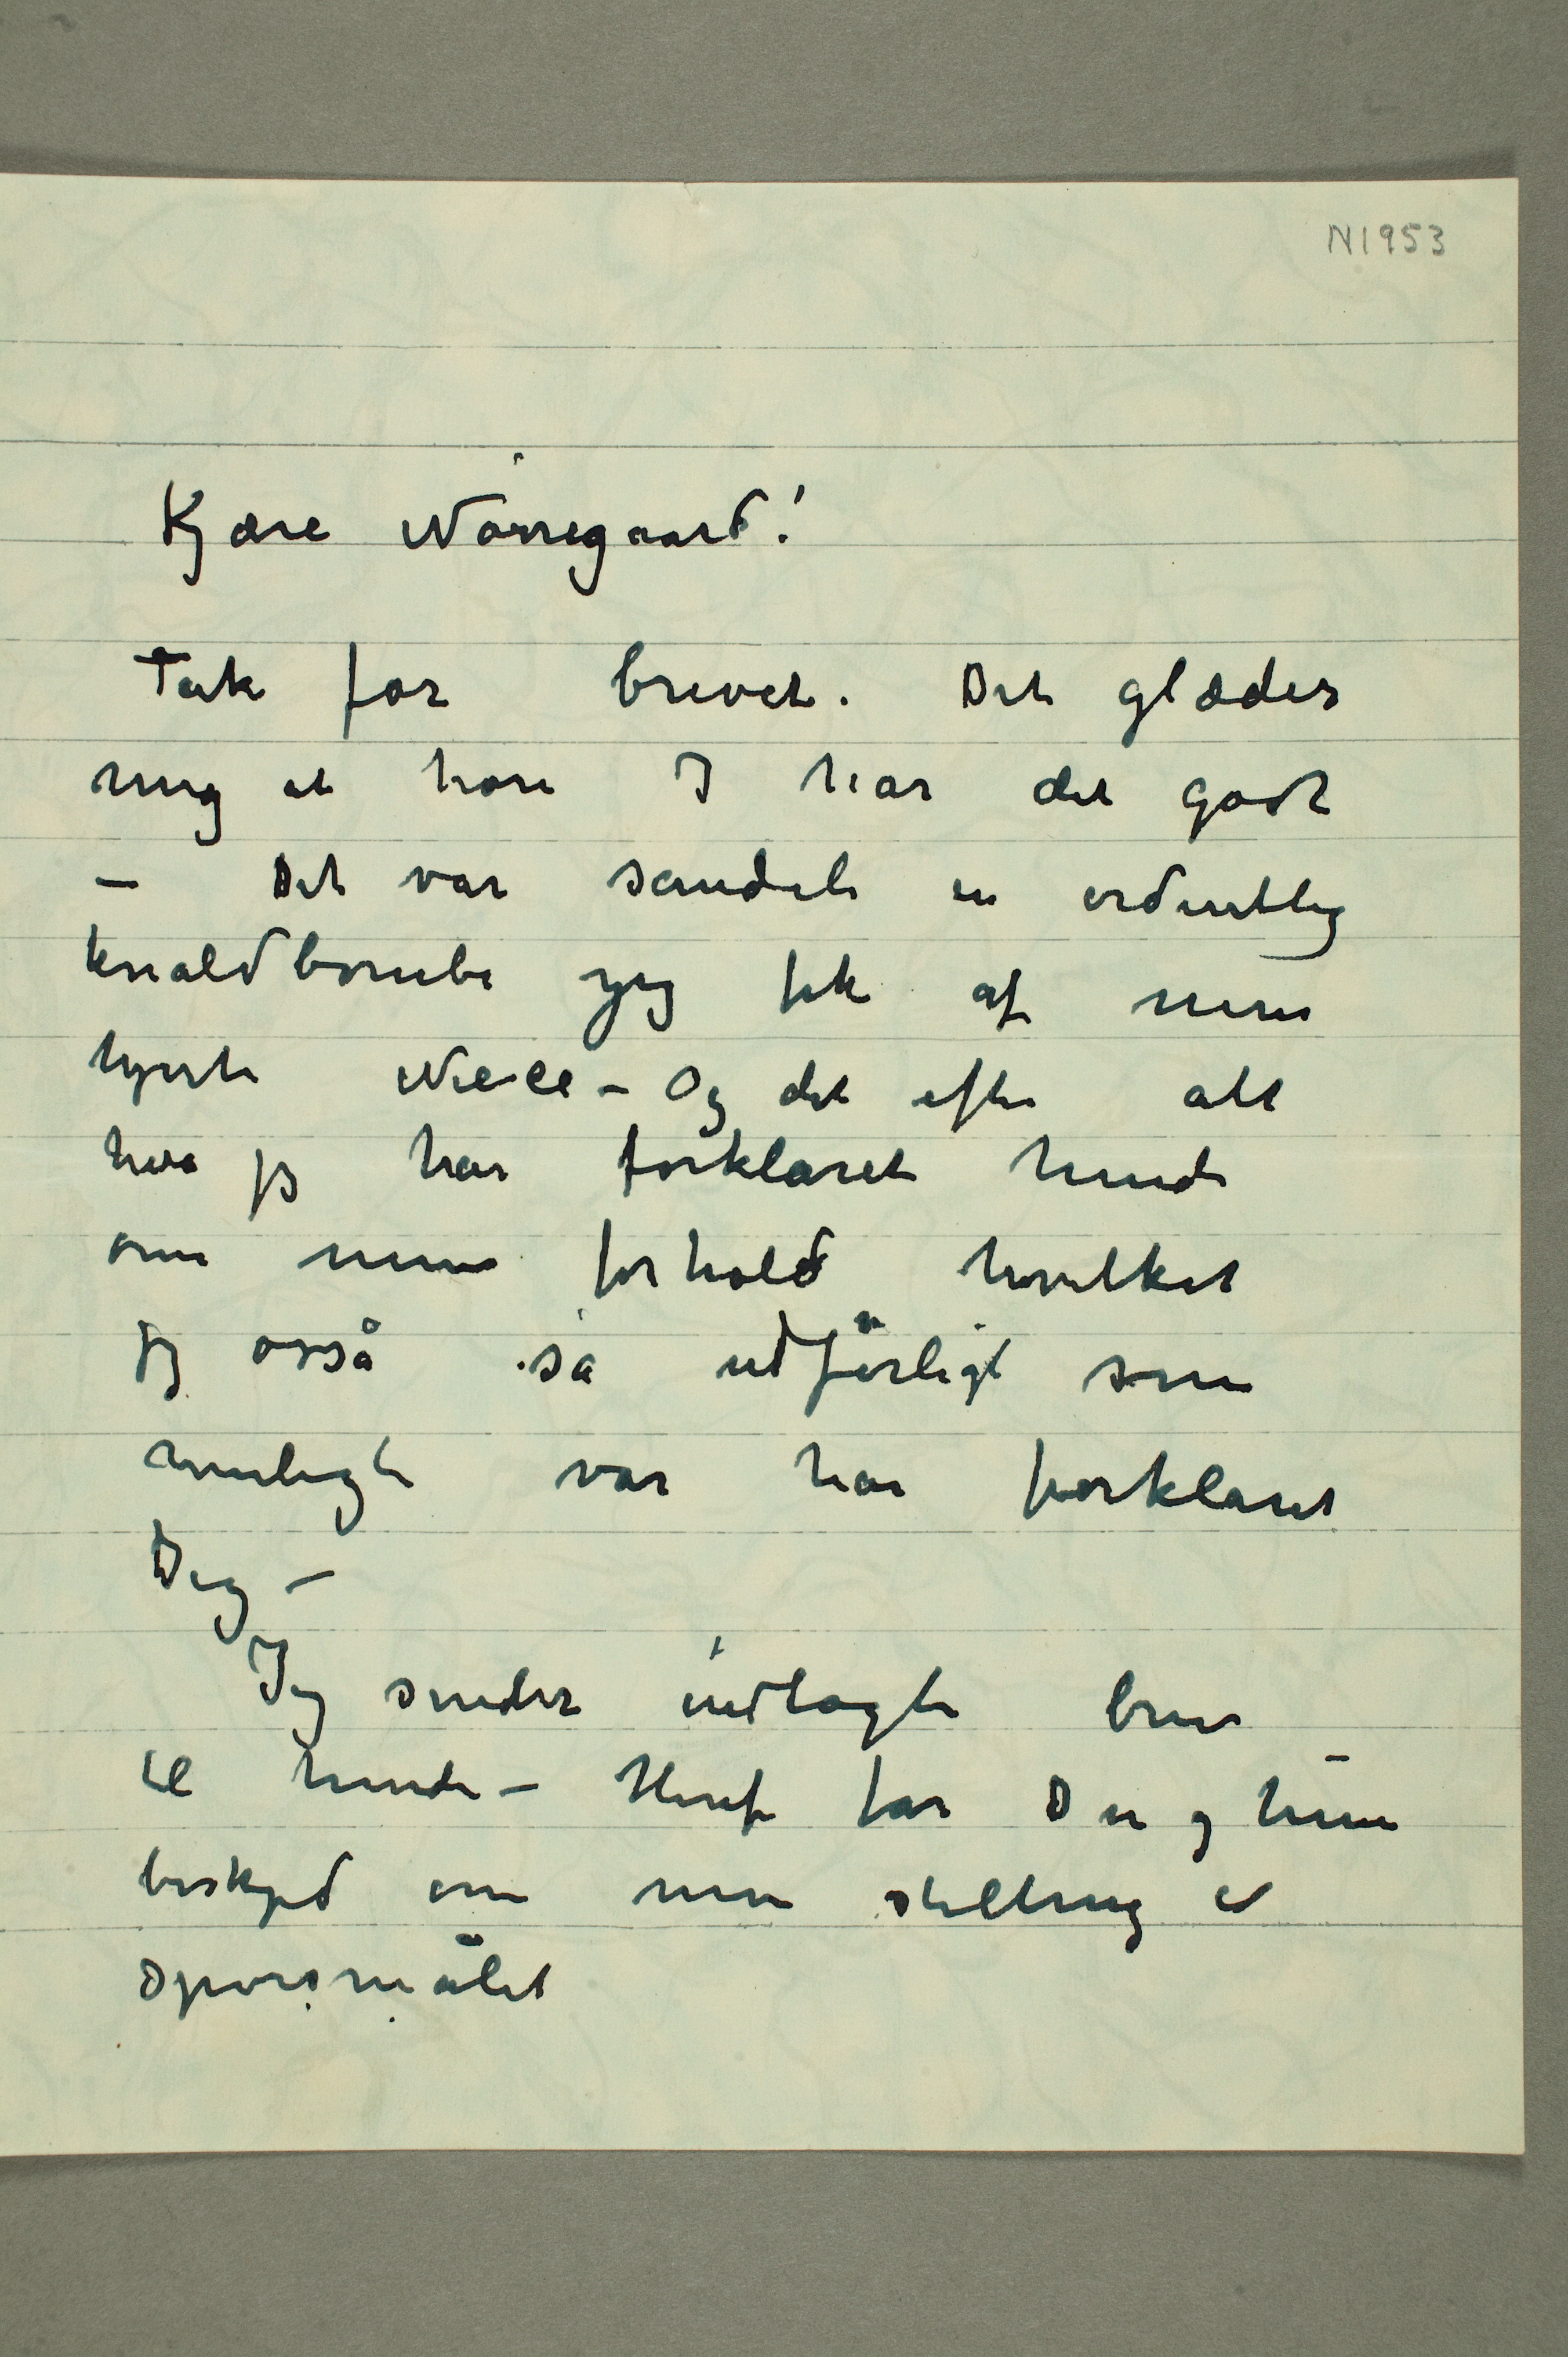 N1953
Kjære Nørregaard!
Tak for brevet. Det glæder
mig at høre I har det godt
– Det var sandeli en ordentlig
knaldbombe jeg fik af min
kjæreste Niece – Og det efter alt
hva jeg har forklaret hende
om mine forhold hvilket
jeg også så udførligt som
muligt var har forklaret
Dig –
Jeg sender indlagte brev
til hende – Heraf får Du og hun
beskjed om min stilling til
spørsmålet